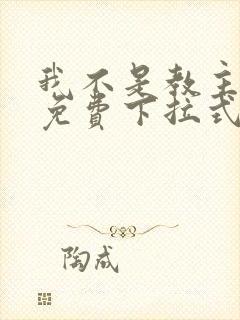 我不是教主
免费下拉式
陶成